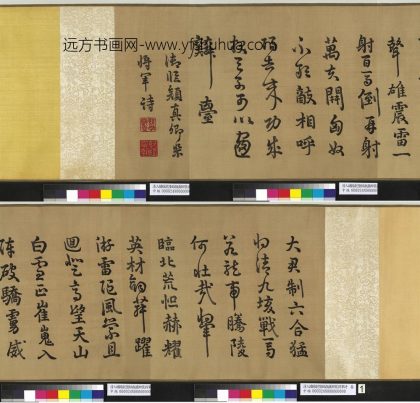 远方书画网
聲雄震雷一
射百馬倒再射
萬夫開匈奴
不敢敵相呼
歸去來功成
報天子可以畫
麟臺
御臨顏真卿裴
將軍詩
大君制六合猛
將清九垓戰馬
若龍虎騰陵
何壯哉
臨北荒恒赫耀
英材劍舞躍
游電隨風縈且
迴登高望天山
白雲正崔嵬入
陣破驕虜威
1